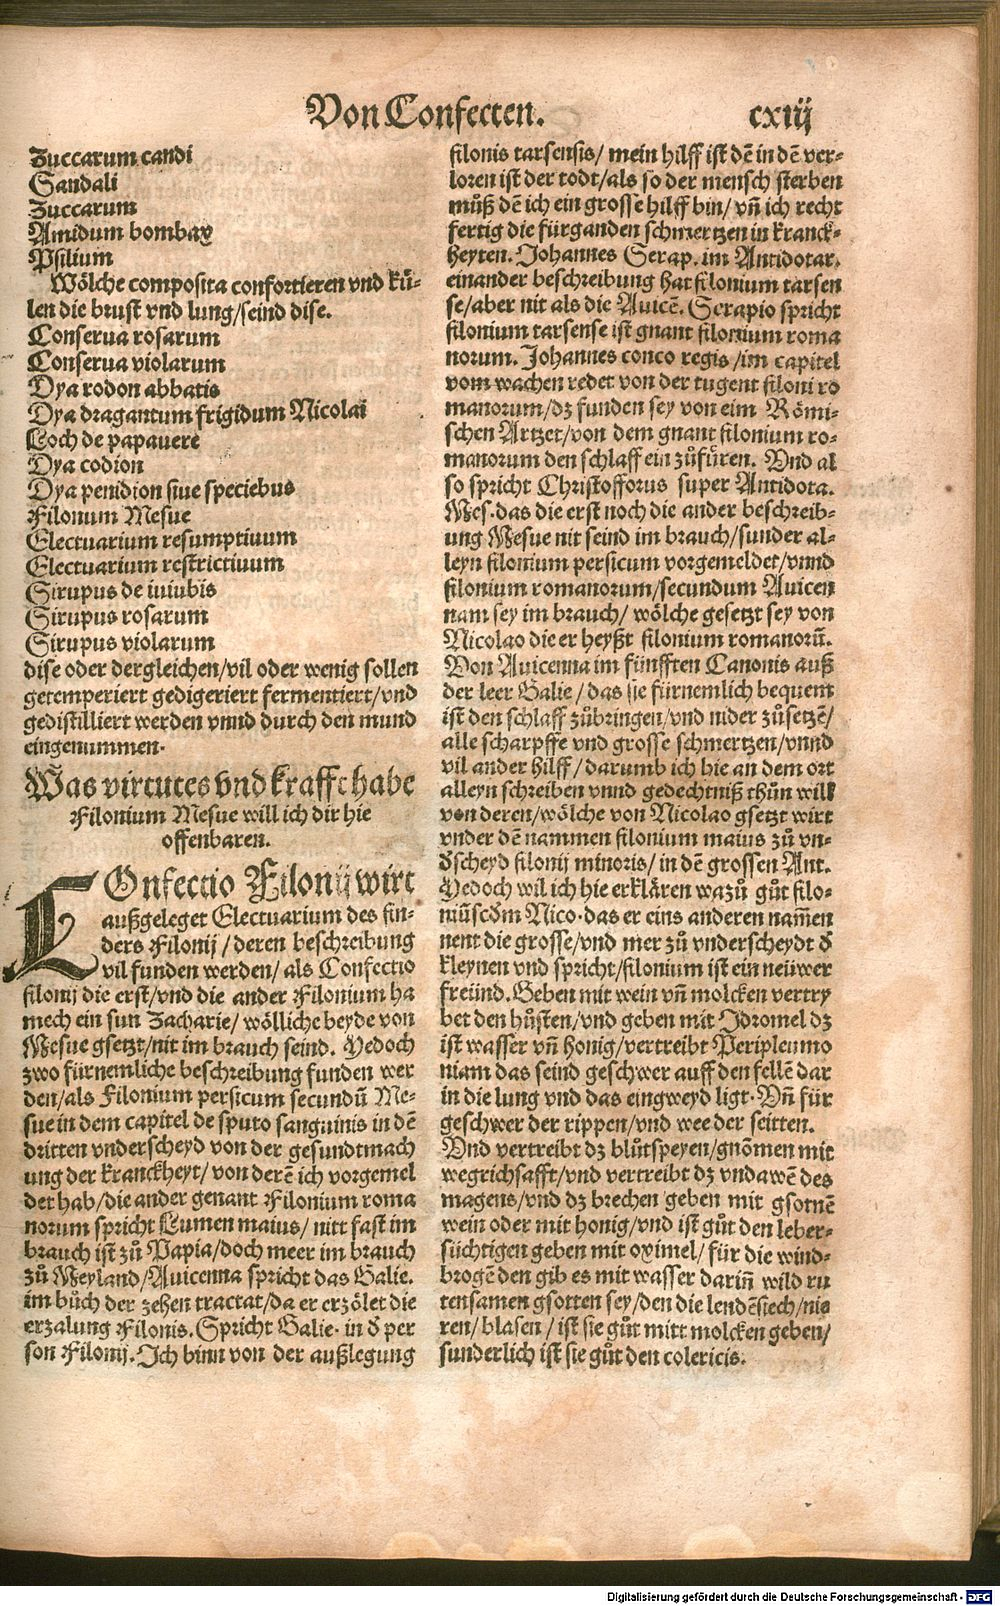 Von Confecten. cxiij
Zuccarum candi
Sandali
Zuccarum
Amidum bombax
Psilium
Wölche composita confortieren vnd kü-
len die brust vnd lung/seind dise.
Conserua rosarum
Conserua violarum
Dya rodon abbatis
Dya dragantum frigidum Nicolai
Loch de papauere
Dya codion
Dya penidion siue speciebus
Filonum Mesue
Electuarium resumptiuum
Electuarium restrictiuum
Sirupus de iuiubis
Sirupus rosarum
Sirupus violarum
dise oder dergleichen/vil oder wenig sollen
getemperiert gedigeriert fermentiert/vnd
gedistilliert werden vnnd durch den mund
eingenummen.
Was virtutes vnd krafft habe
Filonium Mesue will ich dir hie
offenbaren.
COnfectio Filonij wirt
außgeleget Electuarium des fin-
ders Filonij/deren beschreibung
vil funden werden/als Confectio
filonij die erst/vnd die ander Filonium ha
mech ein sun Zacharie/wölliche beyde von
Mesue gsetzt/nit im brauch seind. Yedoch
zwo fürnemliche beschreibung funden wer
den/als Filonium persicum secundū Me-
sue in dem capitel de sputo sanguinis in dē
dritten vnderscheyd von der gesundtmach
ung der kranckheyt/von derē ich vorgemel
det hab/die ander genant Filonium roma
norum spricht Lumen maius/nitt fast im
brauch ist zů Papia/doch meer im brauch
zů Meyland/Auicenna spricht das Galie.
im bůch der zehen tractat/da er erzölet die
erzalung Filonis. Spricht Galie. in d̄ per
son Filonij. Ich binn von der außlegung
filonis tarsensis/mein hilff ist dē in dē ver-
loren ist der todt/als so der mensch sterben
můß dē ich ein grosse hilff bin/vn̄ ich recht
fertig die fürganden schmertzen in kranck-
heyten. Johannes Serap. im Antidotar.
einander beschreibung hat filonium tarsen
se/aber nit als die Auicē. Serapio spricht
filonium tarsense ist gnant filonium roma
norum. Johannes conco regis/im capitel
vom wachen redet von der tugent filoni ro
manorum/dz funden sey von eim Römi-
schen Artzet/von dem gnant filonium ro-
manorum den schlaff ein zůfüren. Vnd al
so spricht Christofforus super Antidota.
Mes. das die erst noch die ander beschreib-
ung Mesue nit seind im brauch/sunder al-
leyn filonium persicum vorgemeldet/vnnd
filonium romanorum/secundum Auicen
nam sey im brauch/wölche gesetzt sey von
Nicolao die er heyßt filonium romanorū.
Von Auicenna im fünfften Canonis auß
der leer Galie/das sie fürnemlich bequem
ist den schlaff zůbringen/vnd nider zůsetzē/
alle scharpffe vnd grosse schmertzen/vnnd
vil ander hilff/darumb ich hie an dem ort
alleyn schreiben vnnd gedechtniß thůn will
von deren/wölche von Nicolao gsetzt wirt
vnder dē nammen filonium maius zů vn-
d̄scheyd filonij minoris/in dē grossen Ant.
Yedoch wil ich hie erklären wazů gůt filo-
niū scd̄m Nico. das er eins anderen nam̄en
nent die grosse/vnd mer zů vnderscheydt d̄
kleynen vnd spricht/filonium ist ein neüwer
freünd. Geben mit wein vn̄ molcken vertry
bet den hůsten/vnd geben mit Idromel dz
ist wasser vn̄ honig/vertreibt Peripleumo
niam das seind geschwer auff den fellē dar
in die lung vnd das eingweyd ligt. Vn̄ für
geschwer der rippen/vnd wee der seitten.
Vnd vertreibt dz blůtspeyen/gnōmen mit
wegrichsafft/vnd vertreibt dz vndawē des
magens/vnd dz brechen geben mit gsotnē
wein oder mit honig/vnd ist gůt den leber-
süchtigen geben mit oximel/für die wind-
brogē den gib es mit wasser darin̄ wild ru
tensamen gsotten sey/den die lendēsiech/nie
ren/blasen/ist sie gůt mitt molcken geben/
sunderlich ist sie gůt den colericis.
Digitalisierung gefördert durch die Deutsche Forschungsgemeinschaft - DFG